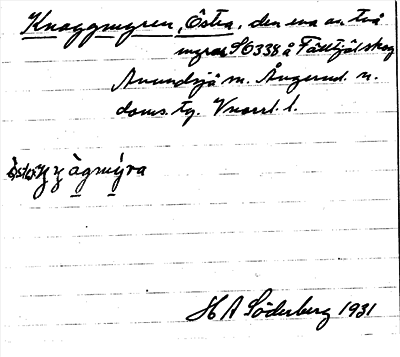 Knaggmyren, Östra, den ena av två
myrar SO338 å Fälltjälskog
Anundsjö sn. Ångerml. n.
doms. tg. Vnorrl. l.
àgmýra
H A Söderberg 1931